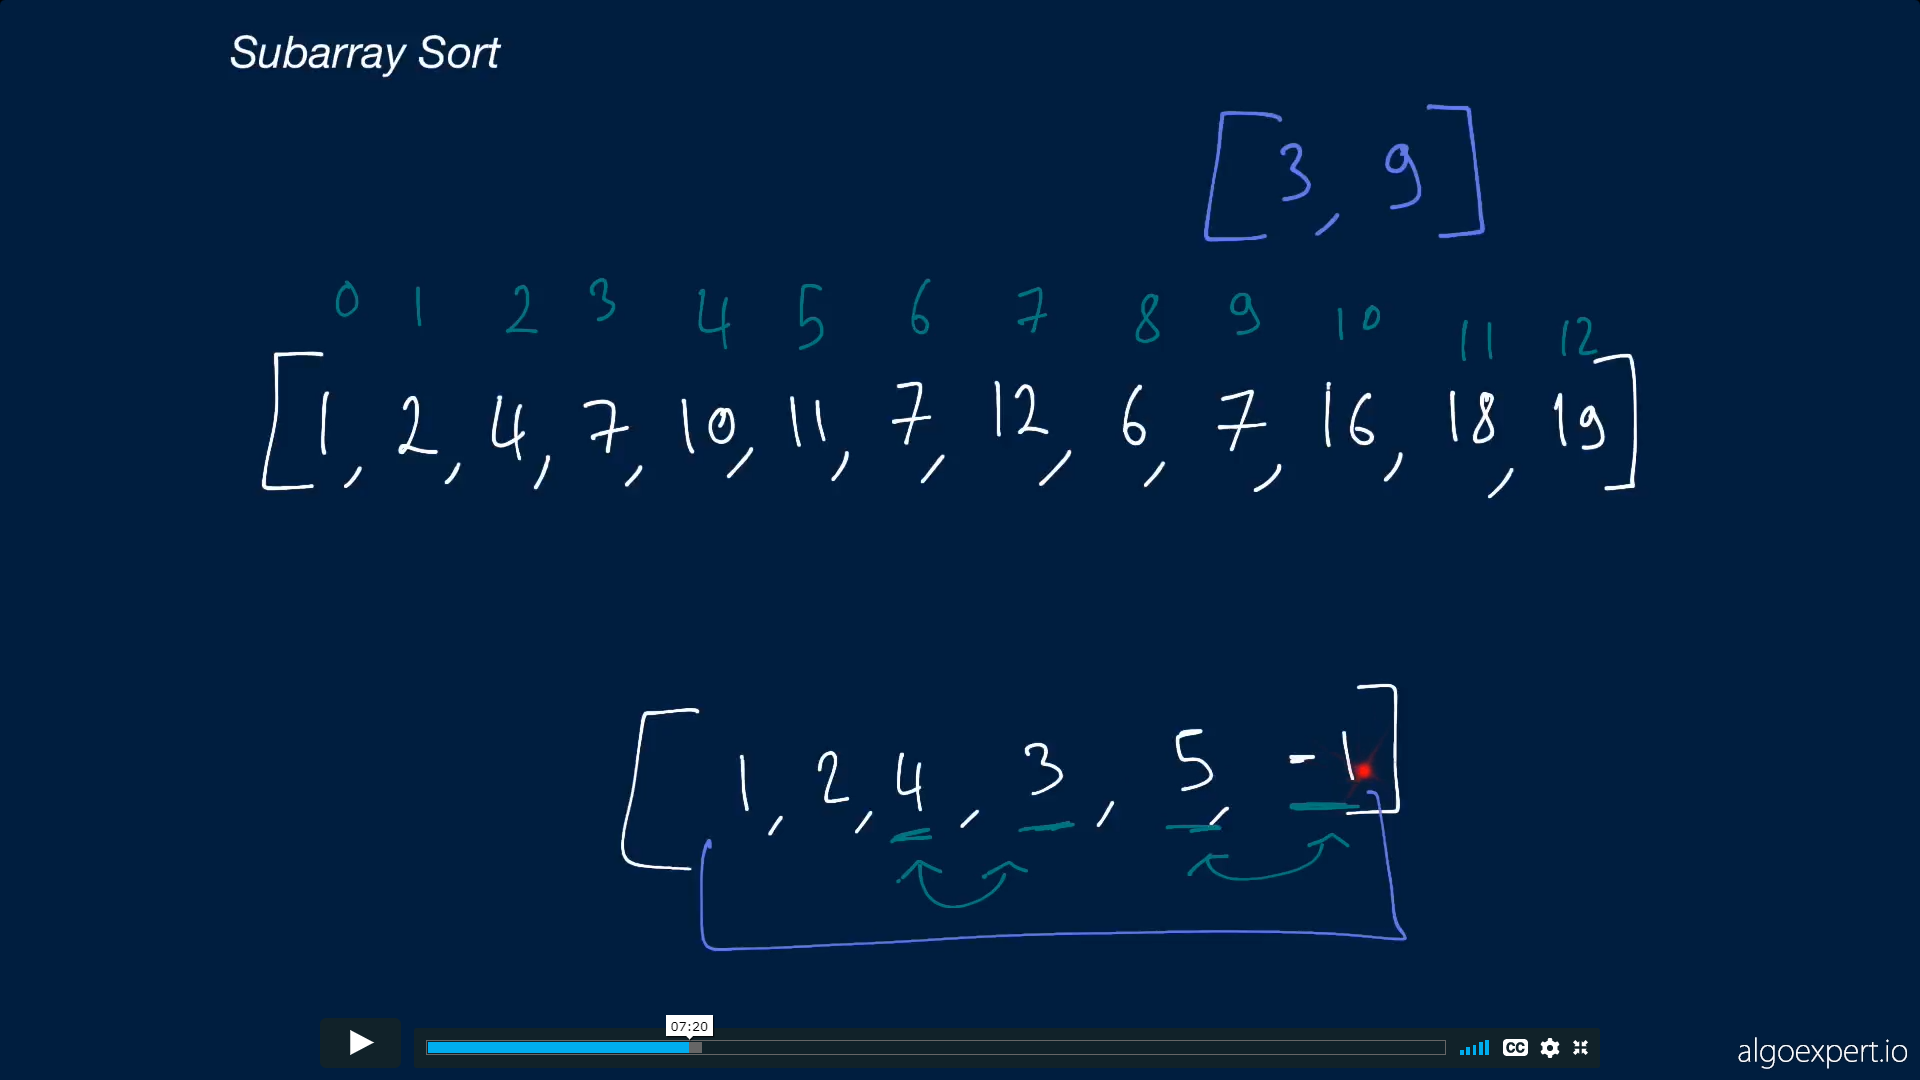 Subarray Sort
[3, 9]
0 1 2 3 4 5 6 7 8 9 10 11 12
[1, 2, 4, 7, 10, 11, 7, 12, 6, 7, 16, 18, 19]
[1, 2, 4, 3, 5, -1]
07:20
CC
algoexpert.io